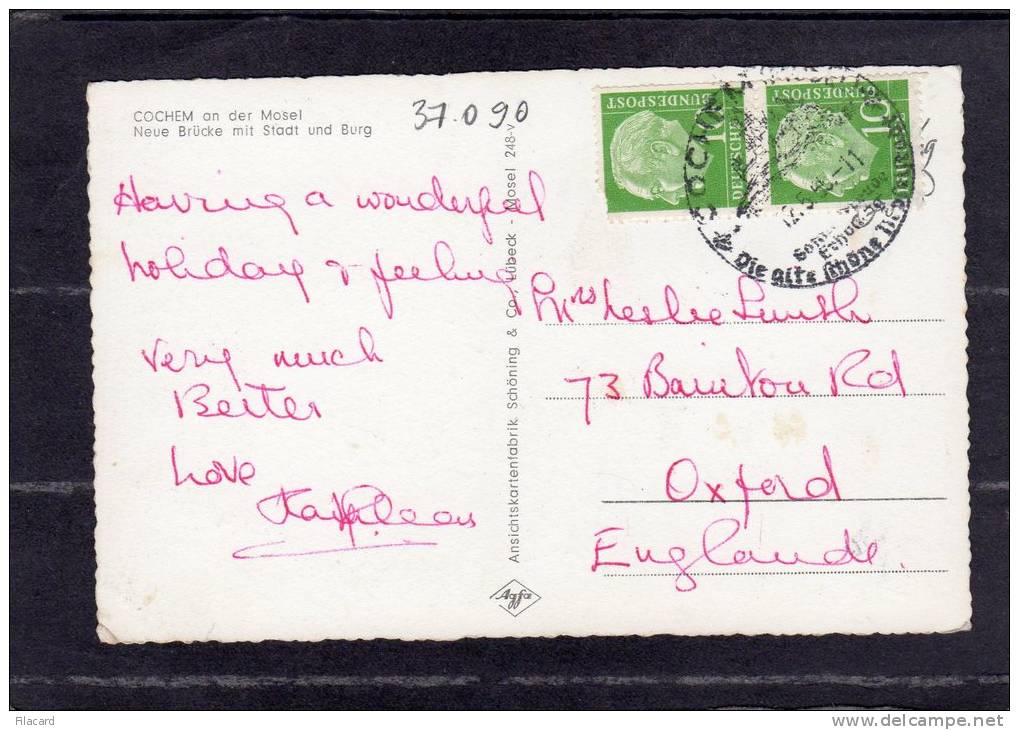 COCHEM an der Mosel
Neue Brücke mit Stadt und Burg
37.090
Having a wonderful
holiday & feeling
very much
Better
Love
Kathleen
Ansichtskartenfabrik Schöning & Co., Lübeck - Mosel 248-v
Agfa
DEUTSCHE
BUNDESPOST
1
BUNDESPOST
10
Die alte schöne
Mrs Leslie Smith
73 Bainton Rd
Oxford
Englande.
Filacard
www.delcampe.net